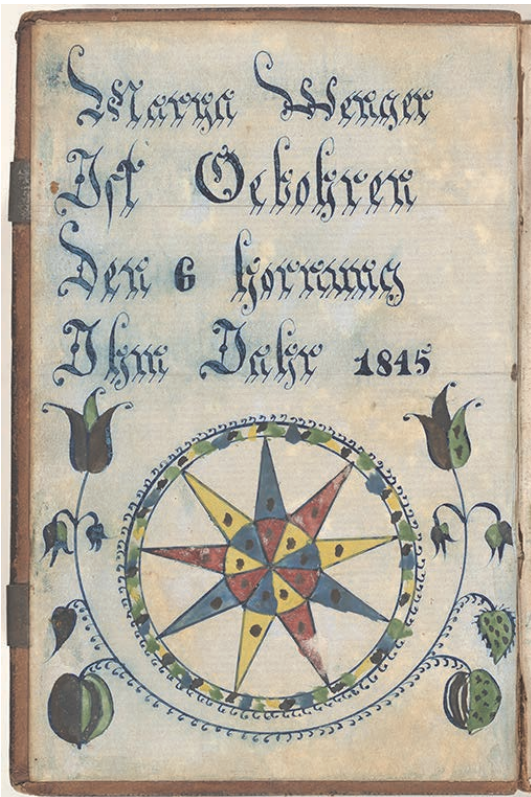 Marya Wenger
Ist Gebohren
Den 6 horrnung
Ihm Jahr 1845